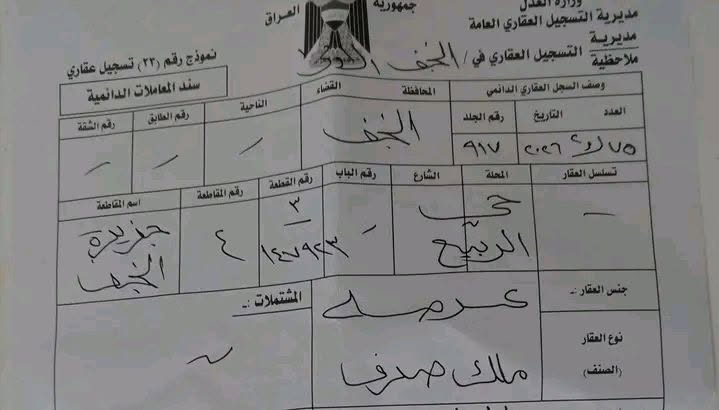 جمهورية
العراق
وزارة العدل
مديرية التسجيل العقاري العامة
مديرية
ملاحظية
التسجيل العقاري في / النجف
نموذج رقم (٢٣) تسجيل عقاري
سند المعاملات الدائمية
وصف السجل العقاري الدائمي
المحافظة
القضاء
الناحية
رقم الطابق
رقم الشقة
العدد
التاريخ
رقم الجلد
النجف
٧٥
٢٠٢٦
٩١٧
تسلسل العقار
المحلة
الشارع
رقم الباب
رقم القطعة
رقم المقاطعة
اسم المقاطعة
حي
الربيع
٣
١٤٧٩٢٣
٤
جزيرة
النجف
جنس العقار :-
عرصه
المشتملات :-
نوع العقار
(الصنف)
ملك صرف